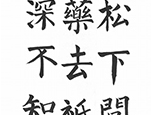 松下問
藥去祇
深不知